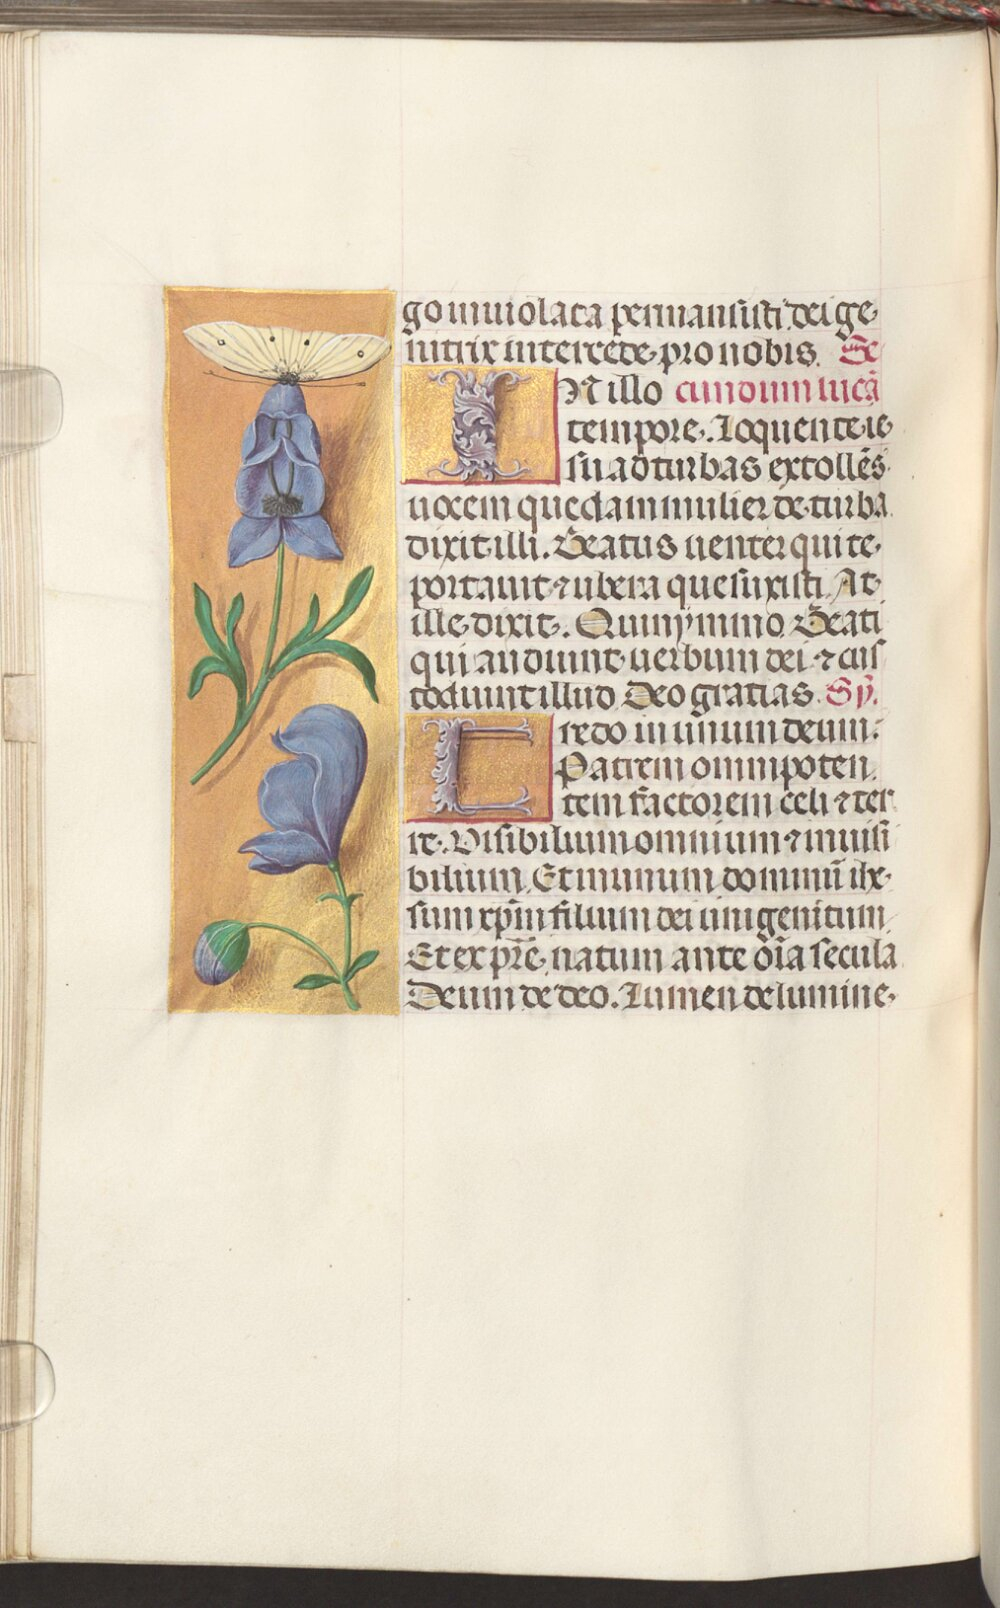 go inuiolata permansisti. dei ge
nitrix intercede pro nobis. Se
IN illo cundum lucā
tempore. Loquente ie
su ad turbas extollēs
uocem quedam mulier de turba
dixit illi. Beatus uenter qui te
portauit ⁊ ubera que suxisti. At
ille dixit. Quinymmo Beati
qui audiunt uerbum dei ⁊ cus
todiunt illud Deo gratias. Sy̅.
Credo in unum deum.
Patrem omnipoten
tem factorem celi ⁊ ter
re. Visibilium omnium ⁊ inuisi
bilium. Et in unum dominū ihe
sum xp̅m filium dei unigenitum
Et ex pr̅e natum ante oīa secula
Deum de deo. Lumen de lumine